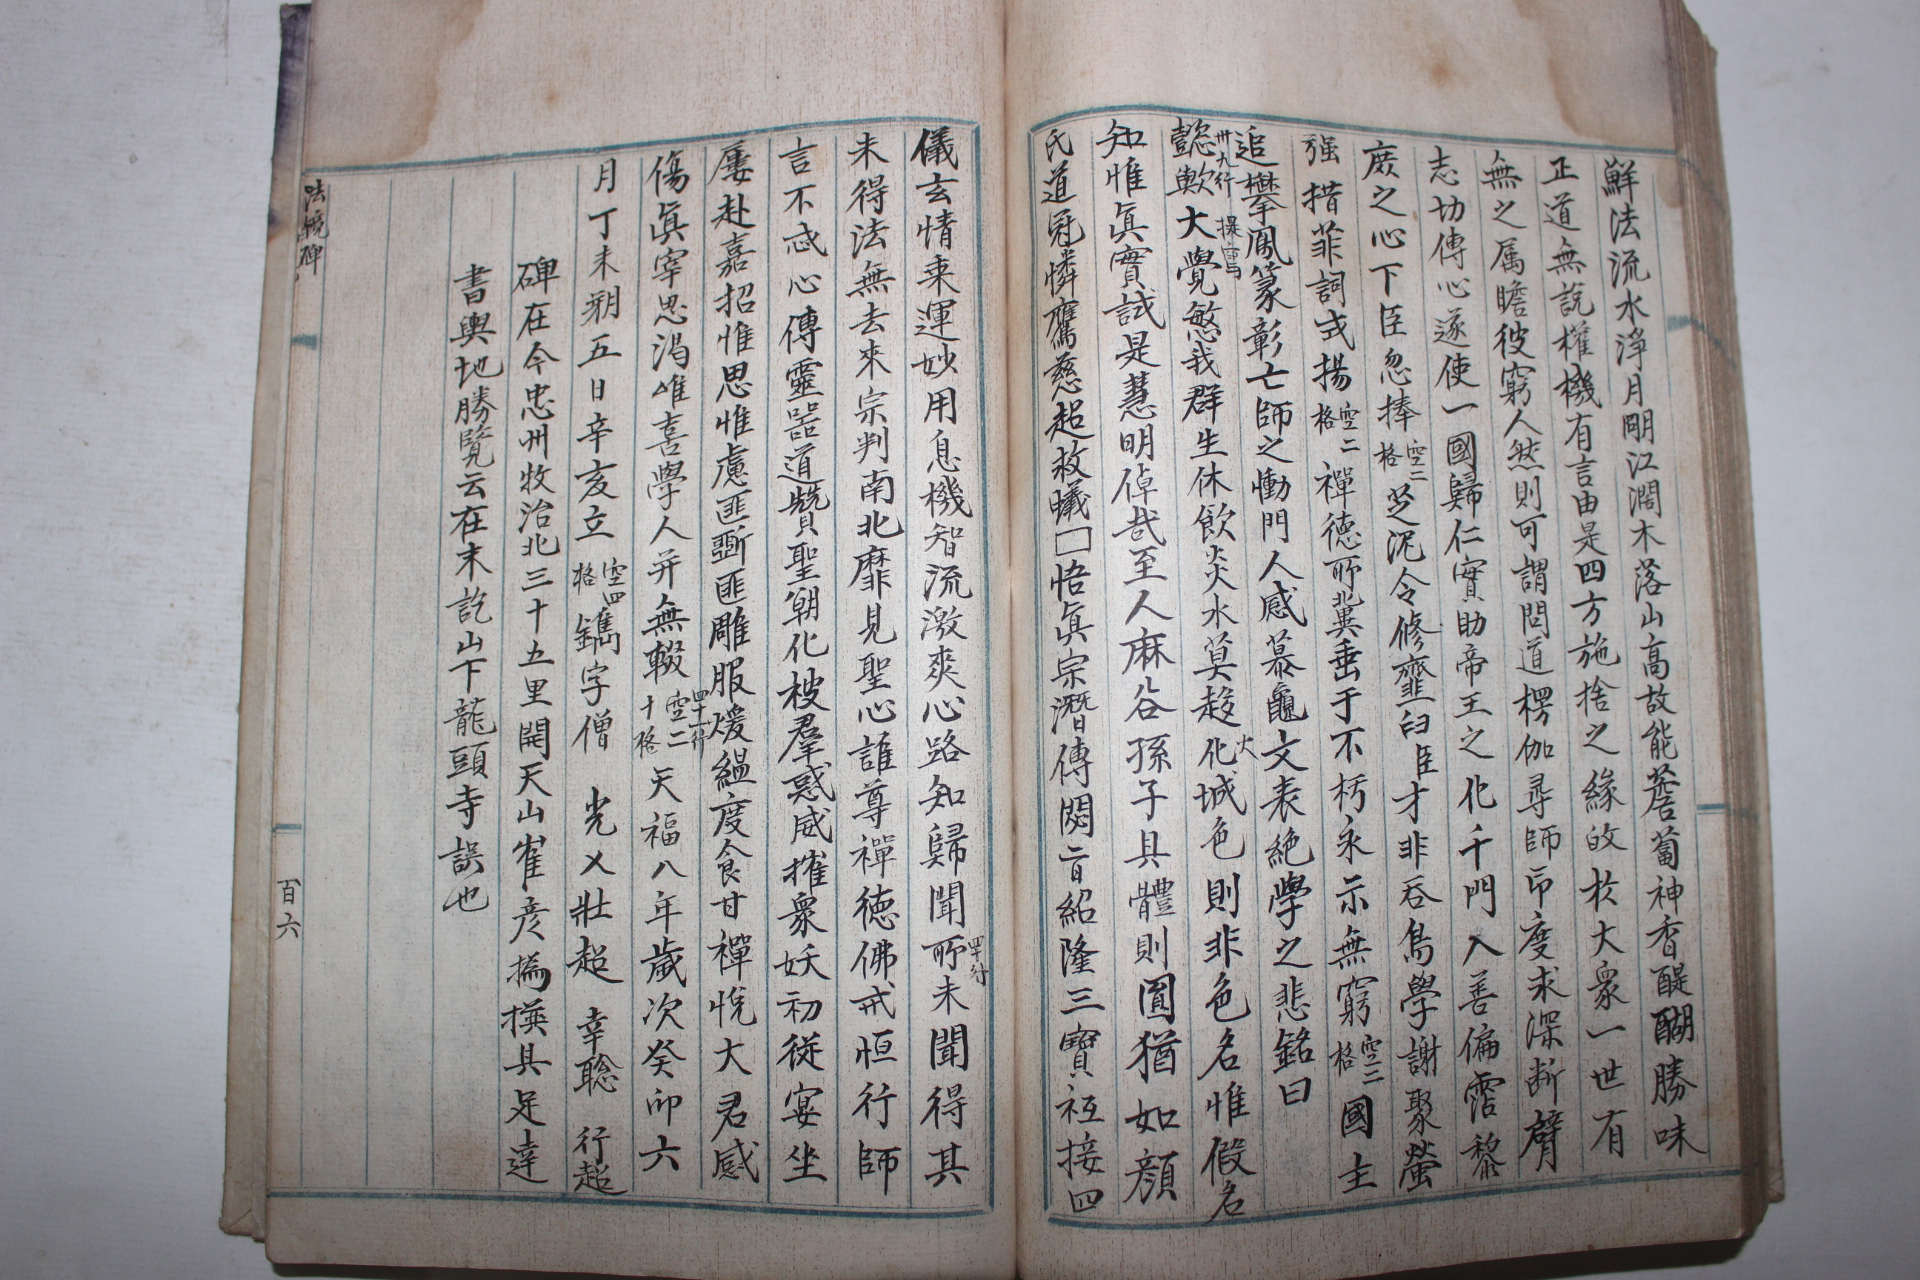 鮮法流水淨月剛江濶木落山高故能薝蔔神香醍醐勝味
正道無說權機有言由是四方施捨之緣皈於大衆一世有
無之属瞻彼窮人然則可謂問道楞伽尋師印度求深断臂
志切傳心遂使一國歸仁實助帝王之化千門入善偏霑黎
庶之心下臣忽捧空二格芝泥令修虀臼臣才非呑鳥學謝聚螢
强措菲詞式揚空二格禪德所冀垂于不朽永示無窮空二格國主
追攀鳳篆彰亡師之慟門人感慕龜文表絶學之悲銘曰
卅九行
懿歟大覺慜我群生休飲炎水莫趍化城色則非色名惟假名
知惟眞實試是慧明倬哉至人麻谷孫子具體則圓猶如顔
氏道冠憐鷹慈超救蟻囗悟眞宗潛傳閟旨紹隆三寶袛接四
儀玄情来運妙用息機智流激爽心路知歸聞所未聞得其
四十行
未得法無去來宗判南北靡見聖心誰尊禪德佛戒恒行師
言不忒心傳靈器道贊聖朝化被羣惑威摧衆妖初從宴坐
屢赴嘉招惟思惟慮匪斵匪雕服煖縕度食甘禪悅大君感
傷眞宰思渴唯喜學人并無輟四十一行空二十格天福八年歲次癸卯六
月丁未朔五日辛亥立空四格鐫字僧 光乂壯超 幸聡 行超
碑在今忠州牧治北三十五里開天山崔彦撝撰具足達
書輿地勝覽云在末訖山下龍頭寺誤也
法鏡碑
百六